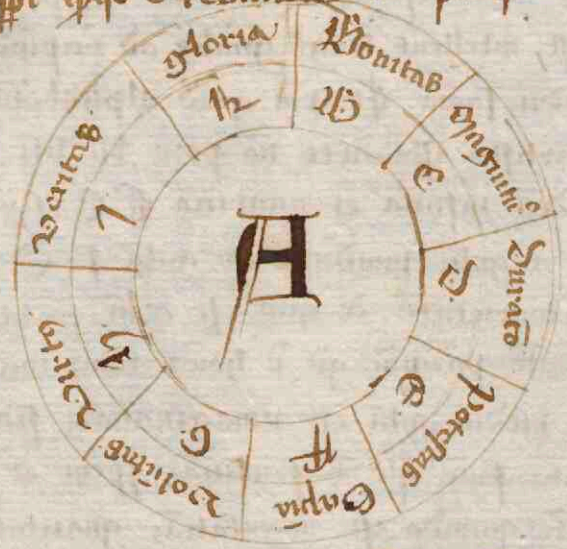 A
Bonitas
B
Magnitudo
C
Duratō
D
Potestas
E
Sapīa
F
Volūtas
G
Virtus
H
Veritas
I
Gloria
K